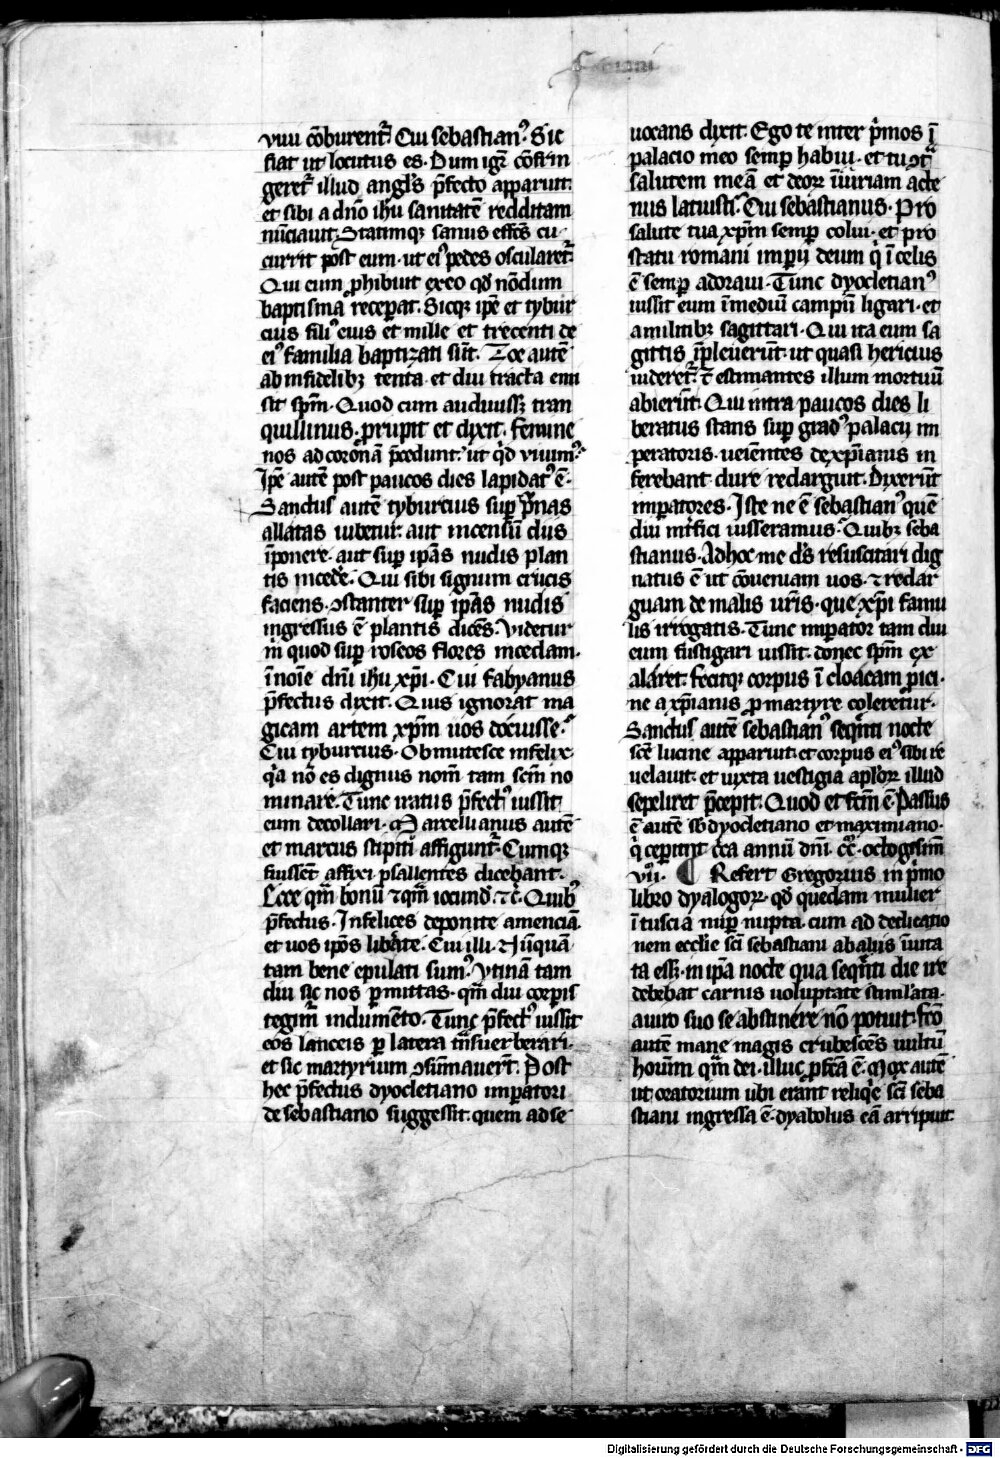 viui cōburent᷒. Cui sebastianꝰ. Sic
fiat ut locutus es. Dum igit᷒ cōfrin
geret᷒ illud angl̄s p̄fecto apparuit.
et sibi a dn̄o ihū sanitatē redditam
nūciauit. Statimqꝫ sanus effc̄s cu
currit post eum. ut eiꝰ pedes oscularet᷒.
Qui eum ꝓhibuit ex eo qd̄ nōdum
baptismā recepat. Sicqꝫ ip̄e et tybur
cius filiꝰ eius et mille et trecenti de
eiꝰ familia baptizati sūt. Zoe autē
ab infidelibꝫ tenta et diu tracta emi
sit sp̄m. Quod cum audiuissꝫ tran
quillinus. prupit et dixit. femine
nos ad coronam p̄cedunt. ut qͥd viuimꝰ.
Ip̄e autē post paucos dies lapidatꝰ ē.
Sanctus autē tyburcius suꝑ pͥnas
allatas iubetur. aut incensū diis
īponere. aut suꝑ ip̄as nudis plan
tis incede᷒. Qui sibi signum crucis
faciens. ꝯstanter suꝑ ip̄as nudis
ingressus ē plantis dicēs. Videtur
m̄ quod suꝑ roseos flores incedam.
ī noīe dn̄i ihū xp̄i. Cui fabyanus
p̄fectus dixit. Quis ignorat ma
gicam artem xp̄m uos docuisse.
Cui tyburcius. Obmutesce infelix.
qͣa nō es dignus nom̄ tam sc̄m no
minare. Tunc iratus p̄fectꝰ iussit
eum decollari. Marcellianus autē
et marcus stipiti affigunt᷒. Cumqꝫ
fuissēt affixi psallentes dicebant.
Ecce qm̄ bonū ⁊ qm̄ iocund̄ ⁊c̄. Quibꝰ
p̄fectus. Infelices deponite amenciā.
et uos ip̄os liberate. Cui illi. Nūquā
tam bene epulati sumꝰ. Vtinā tam
diu sic nos ꝑmittas. qm̄ diu corpīs
tegim̄ indumēto. Tunc p̄fectꝰ iussit
eos lanceis ꝑ latera tn̄suerberari.
et sic martyrium ꝯsūmauert̄. Post
hec p̄fectus dyocletiano imꝑatori
de sebastiano suggessit. quem ad se
uocans dixit. Ego te inter pͥmos ī
palacio meo semꝑ habui. et tu ꝯtͣ
salutem meā et deoꝝ iniuriam acte
nus latuisti. Cui sebastianus. Pro
salute tua xp̄m semꝑ colui. et pro
statu romani imꝑij deum qͥ ī celis
ē semꝑ adoraui. Tunc dyocletianꝰ
iussit eum ī mediū campū ligari. et
a militibꝫ sagittari. Qui ita eum sa
gittis īpleuerūt. ut quasi hericius
uideret᷒. ⁊ estimantes illum mortuū
abierūt. Qui intra paucos dies li
beratus stans suꝑ gradꝰ palacij im
peratoris. ueientes de xp̄ianis in
ferebant dure redarguit. Dixerūt
imꝑatores. Iste ne ē sebastianꝰ quē
diu int̄fici iusseramus. Quibꝫ seba
stianus. Ad hoc me dn̄s resuscitari dig
natus ē ut cōueniam uos. ⁊ redar
guam de malis ur̄is. que xp̄i famu
lis irrogatis. Tunc imꝑator tam diu
eum fustigari iussit. donec sp̄m ex
alaret. fecitqꝫ corpus ī cloacam ꝓici.
ne a xp̄ianis pro martyre coleretur.
Sanctus autē sebastianꝰ seqn̄ti nocte
sc̄e lucine apparuit. et corpus eiꝰ sibi re
uelauit. et iuxta uestigia apl̄oꝝ illud
sepeliret p̄cepit. Quod et fc̄m ē. Passus
ē autē sub dyocletiano et maximiano.
qͥ ceperunt circa annū dn̄i. cc̄. octogesimū
vii. ¶ Refert Gregorius in pͥmo
libro dyalogoꝝ. qd̄ quedam mulier
ī tuscia nuꝑ nupta. cum ad dedicatio
nem ecclie sc̄i sebastiani ab aliis īuita
ta essꝫ. in ipā nocte qua seqn̄ti die ire
debebat carnis uoluptate stimlata.
a uiro suo se abstinere nō potuit. fc̄o
autē mane magis erubescēs uultū
hoīm qm̄ dei. illuc ꝓfc̄a ē. Mox autē
ut oratorium ubi erant reliqͥe sc̄i seba
stiani ingressa ē. dyabolus eā arripuit.
Digitalisierung gefördert durch die Deutsche Forschungsgemeinschaft - DFG